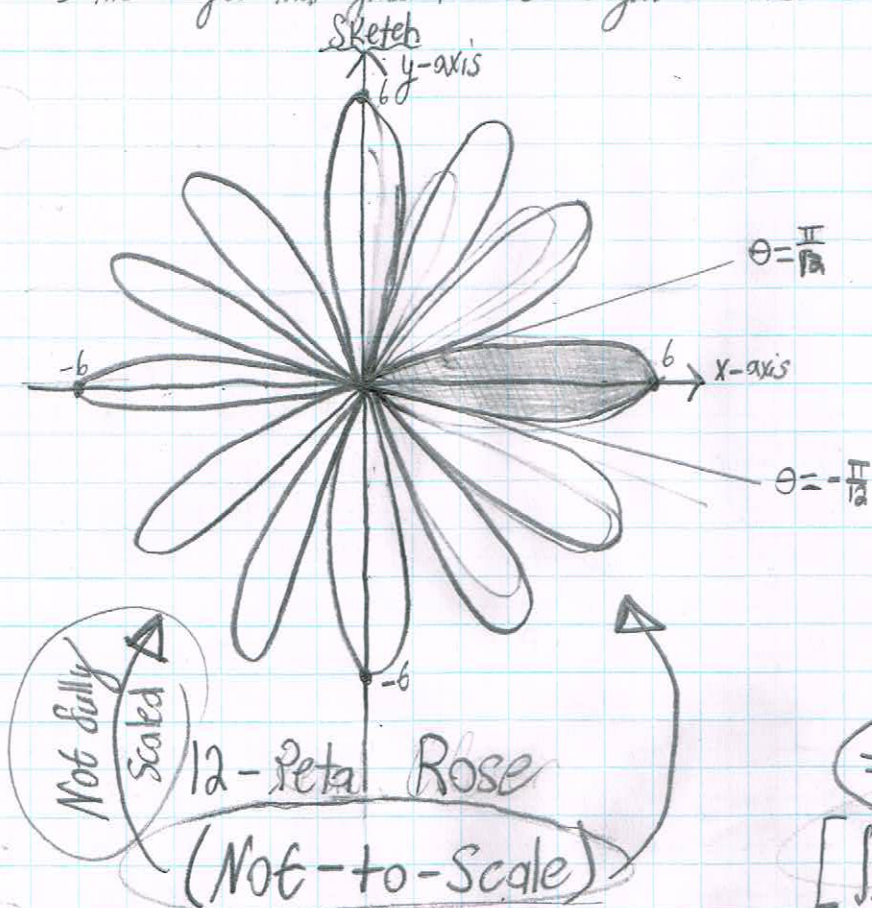 Sketch
y-axis
6
θ=π/12
-6
6
x-axis
θ=-π/12
-6
Not fully
Scaled
12-Petal Rose
(Not-to-Scale)
[∫